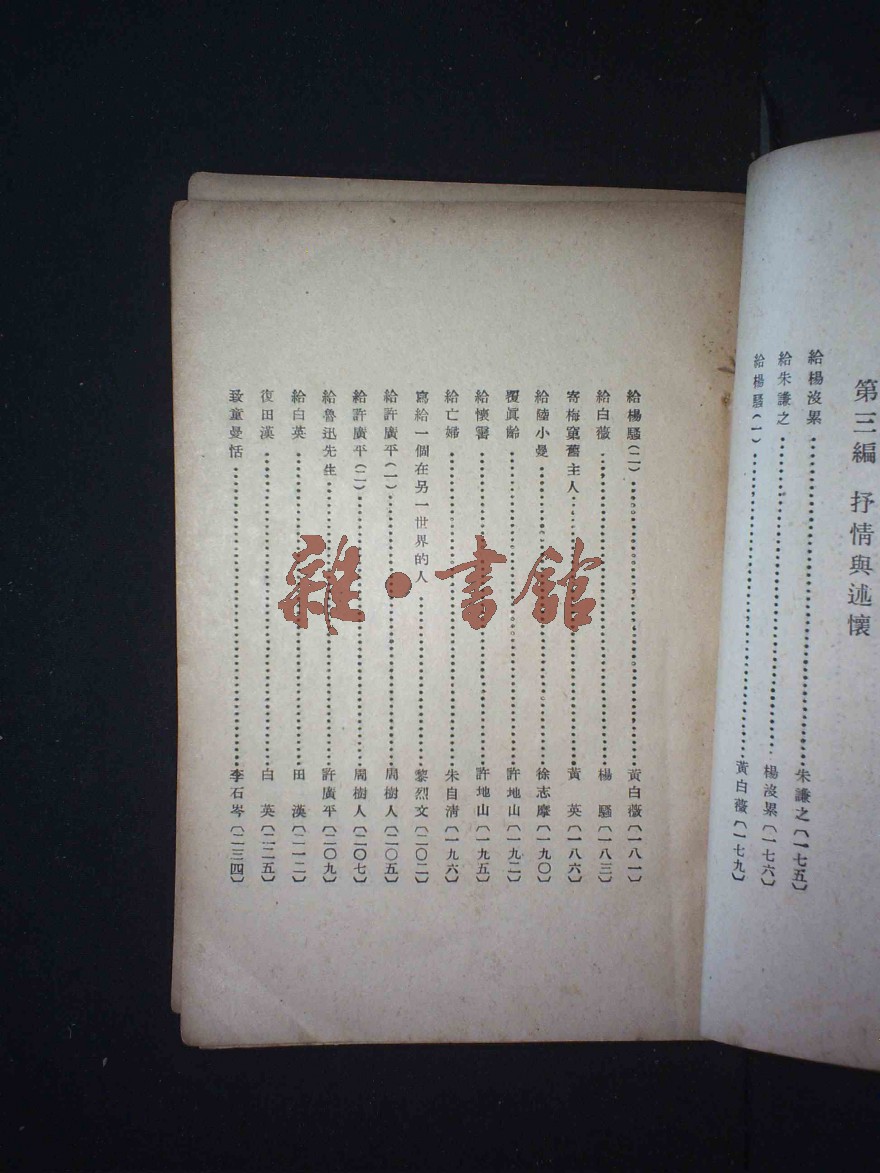 第三編 抒情與述懷
給楊沒累……朱謙之〔一七五〕
給朱謙之……楊沒累〔一七六〕
給楊騷(一)……黃白薇〔一七九〕
給楊騷(二)……黃白薇〔一八一〕
給白薇……楊騷〔一八三〕
寄梅窠舊主人……黃英〔一八六〕
給陸小曼……徐志摩〔一九〇〕
覆眞齡……許地山〔一九二〕
給懷霽……許地山〔一九五〕
給亡婦……朱自淸〔一九六〕
寫給一個在另一世界的人……黎烈文〔二〇二〕
給許廣平(一)……周樹人〔二〇五〕
給許廣平(二)……周樹人〔二〇七〕
給魯迅先生……許廣平〔二〇九〕
給白英……田漢〔二一二〕
復田漢……白英〔二二五〕
致童曼恬……李石岑〔二三四〕
雜·書館